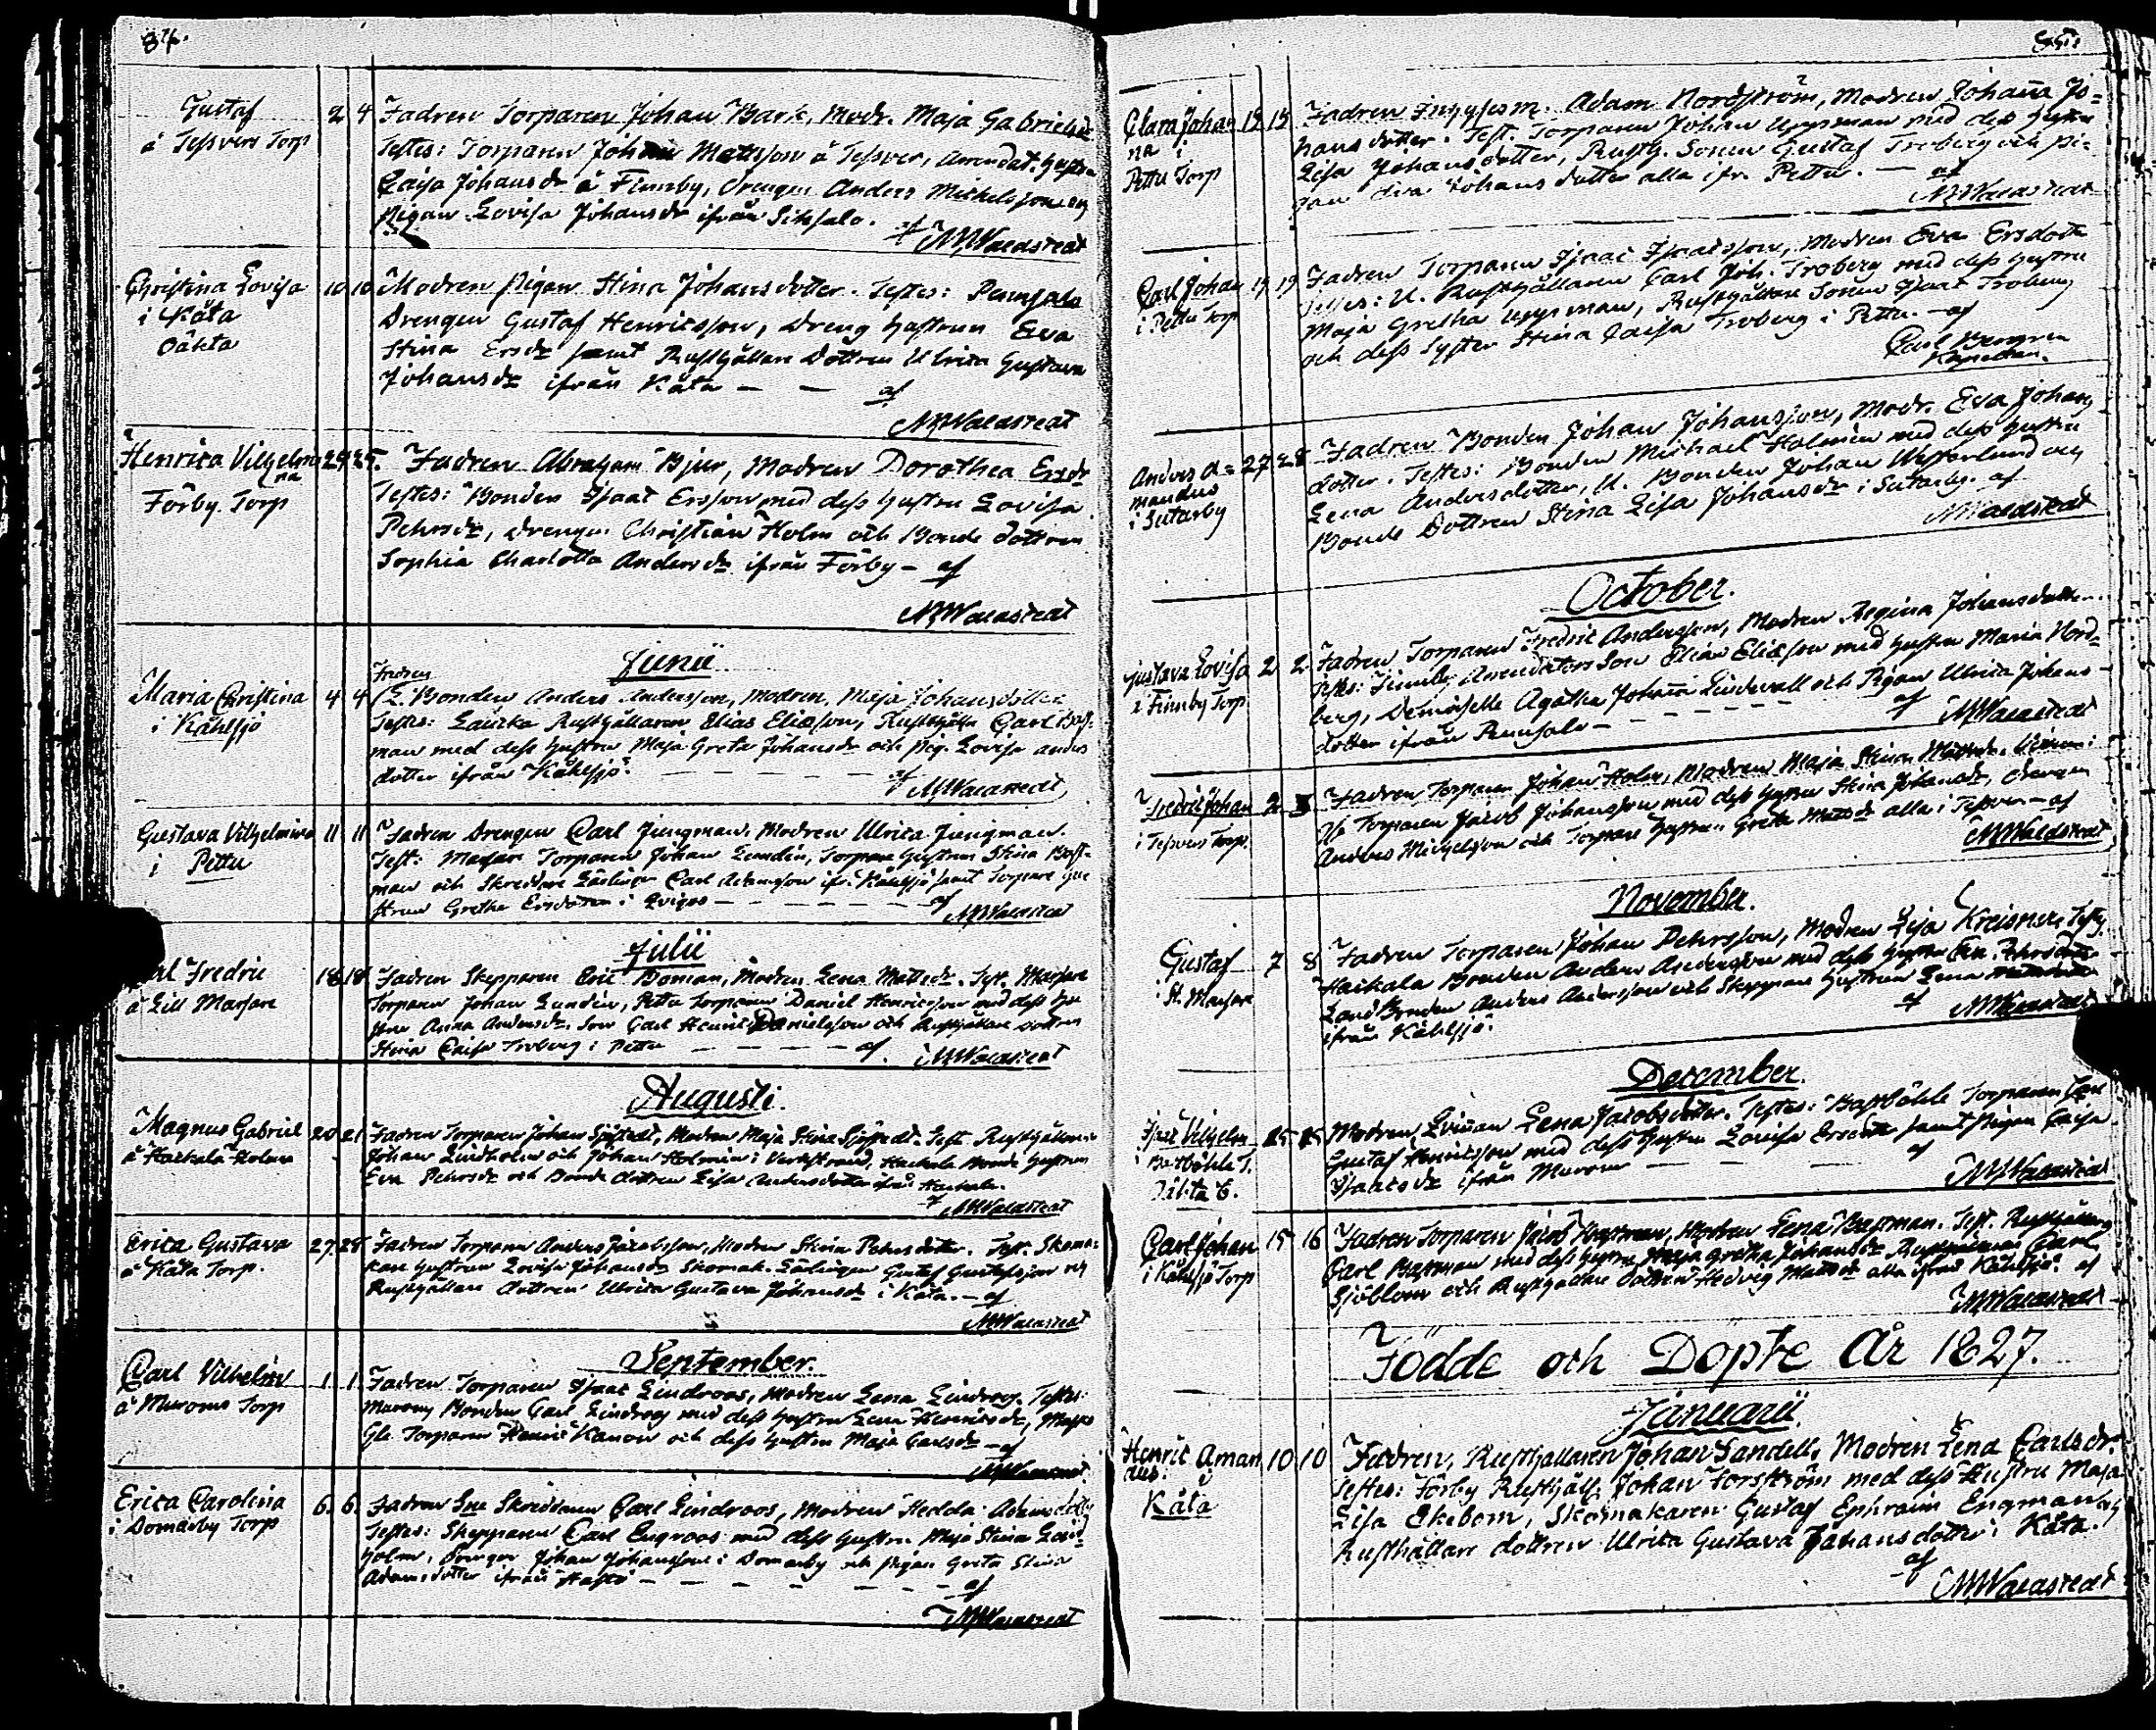 84.
Gustaf
å Tessvers Torp
2 4 Fadren Torparen Johan Bark, Modr. Maja Gabrielsdr
Testes: Torparen Johan Mattsson å Tessver, Arrendat. hustru
Caisa Johansdr å Finnby, Drengen Anders Michelsson och
Pigan Lovisa Johansdr ifrån Siksalo.
af MWaldstedt
Christina Lovisa
i Kåta
Oäkta
10 10 Modren Pigan Stina Johansdotter. Testes: Punsala
Drengen Gustaf Henricsson, Dreng hustrun Eva
Stina Ersdr samt Rusthållare Dottren Ulrica Gustava
Johansdr ifrån Kåta — — af
MWaldstedt
Henrica Vilhelmi
na
Förby Torp
24 25. Fadren Abraham Bjur, Modren Dorothea Ersdr
Testes: Bonden Isaac Ersson med dess hustru Lovisa
Pehrsdr, Drengen Christian Holm och Bonde dottren
Sophia Charlotta Andersdr ifrån Förby — af
MWaldstedt
Junii
Maria Christina
i Kåhlsjö
Fadren
4 4 Bonden Anders Andersson, Modren, Maja Johansdotter
Testes: Rusthållaren Elias Eliæson, Rusthåll. Carl Bast-
man med dess hustru Maja Greta Johansdr och Pig. Lovisa Anders
dotter ifrån Kåhlsjö. — — — af MWaldstedt
Gustava Vilhelmina
i Pettu
11 11 Fadren Drengen Carl Jungman, Modren Ulrica Jungman.
Test: Torparen Johan Lundin, Torpare hustrun Stina Bast-
man och Skreddare Lärlingen Carl Adamsson ifr. Kåhlsjö samt Torpare hu-
strun Gretha Ersdotter i — — — af
MWaldstedt
Julii
Fredric
å Lill Marsare
18 18 Fadren Skepparen Eric Boman, Modren Lena Mattsdr. Test. Marsare
Torparen Johan Lundin, Pettu Torparen Daniel Henricsson med dess hu
stru Anna Andersdr, Son Carl Henric Danielsson och Rusthållare dottren
Stina Caisa Troberg i Pettu — — — af MWaldstedt
Augusti.
Magnus Gabriel
å Haikala Holme
20 21 Fadren Torparen Johan Sjöstedt, Modren Maja Stina Sjöstedt. Test. Rusthållaren
Johan Lindholm och Johan Holmén i Verkstrand, Haikala Bonde hustrun
Eva Pehrsdr och Bonde dottren Lisa Andersdotter ifrån Haikala.
af MWaldstedt
Erica Gustava
å Kåta Torp.
27 28 Fadren Torparen Anders Jacobsson, Modren Stina Pehrsdotter. Test. Skoma-
kare hustrun Lovisa Johansdr Skomak. Lärlingen Gustaf Gustafsson och
Rusthållare dottren Ulrica Gustava Johansdr i Kåta. — af
MWaldstedt
September.
Carl Vilhelm
å Muroms Torp
1 1 Fadren Torparen Isaac Lindroos, Modren Lena Lindroos. Testes:
Muroms Bonden Carl Lindroos med dess hustru Lena Henricsdr,
Torparen Henric Kanon och dess hustru Maja Carlsdr — af
MWaldstedt
Erica Carolina
i Domarby Torp
6. 6. Fadren Skreddaren Carl Lindroos, Modren Hedda Adamsdotter
Testes: Skepparen Carl Engroos med dess hustru Maja Stina Lind
holm, Drengen Johan Johansson i Domarby och Pigan Greta Stina
Adamsdotter ifrån — — — af
MWaldstedt
85.
Clara Johan
na i
Pettu Torp
15 15 Fadren Adam Nordström, Modren Johanna Jo-
hansdotter. Test. Torparen Johan Uppman med dess hustru
Lisa Johansdotter, Rusth. Sonen Gustaf Troberg och Pi-
gan Eva Johansdotter alla ifr. Pettu. — af
MWaldstedt
Carl Johan
i Pettu Torp
19 19 Fadren Torparen Isaac Isaacsson, Modren Eva Ersdotter
Testes: U. Rusthållaren Carl Joh. Troberg med dess hustru
Maja Gretha Uppman, Rusthållare Sonen Isaac Troberg
och dess Syster Stina Caisa Troberg i Pettu. — af
Carl Bergren
Anders A-
mandus
i Sutarby
27 28 Fadren Bonden Johan Johansson, Modr. Eva Johans
dotter. Testes: Bonden Michael Holmén med dess hustru
Lena Andersdotter, U. Bonden Johan Westerlund och
Bonde Dottren Stina Lisa Johansdr i Sutarby. af
MWaldstedt
October.
Gustava Lovisa
i Finnby Torp
2 2 Fadren Torparen Fredric Andersson, Modren Regina Johansdotter.
Testes: Finnby Arrendators Son Elias Eliæson med hustru Maria Nord-
berg, Demoiselle Agatha Johanna Lindevall och Pigan Ulrica Johans-
dotter ifrån Punsalo — — — af MWaldstedt
Fredric Johan
i Tessvers Torp.
2 3 Fadren Torparen Johan Holm, Modren Maja Stina Mattsdr.
Torparen Jacob Johansson med dess hustru Stina Johansdr, Drengen
Anders Michelsson och Torpare hustrun Greta Mattsdr alla i Tessver. — af
MWaldstedt
November.
Gustaf
i St. Marsare
7 8 Fadren Torparen Johan Pehrsson, Modren Lisa Kreisner. Test.
Haikala Bonden Anders Andersson med dess hustru Eva Pehrsdotter
Bonden Anders Andersson och Skeppare hustrun Lena Mattsdotter
ifrån Kåhlsjö.
af MWaldstedt
December.
Isac Vilhelm
i Bastböhle T.
Oäkta
15 15 Modren Qvinnan Lena Jacobsdotter. Testes: Bastböhle Torparen
Gustaf Henricsson med dess hustru Lovisa Ersdotter samt Pigan Caisa
Isaacsdr ifrån Murom — — — af
MWaldstedt
Carl Johan
i Kåhlsjö Torp
15 16 Fadren Torparen Jacob Bastman, Modren Lena Bastman. Test. Rusthållaren
Carl Bastman med dess hustru Maja Gretha Johansdr Carl
Sjöblom och Rusthållare dottren Hedvig Mattsdr alla ifrån Kåhlsjö. af
MWaldstedt
Födde och Döpte År 1827.
Januarii.
Henric Aman
dus. i
Kåta
10 10 Fadren, Rusthållaren Johan Sandell, Modren Lena Carlsdr.
Testes: Förby Rusthåll. Johan Forsström med dess Hustru Maja
Lisa Ekebom, Skomakaren Gustaf Ephraim Engman och
Rusthållare dottren Ulrica Gustava Johansdotter i Kåta.
af
MWaldstedt